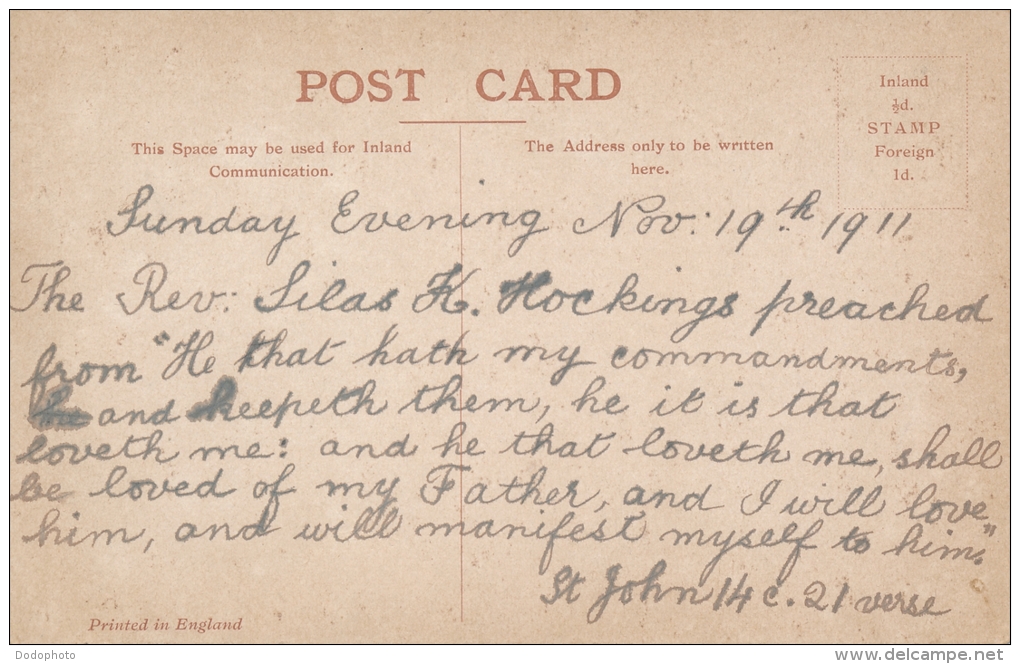 POST CARD
This Space may be used for Inland
Communication.
The Address only to be written
here.
Inland
½d.
STAMP
Foreign
1d.
Sunday Evening Nov: 19th 1911
The Rev: Silas K. Hockings preached
from "He that hath my commandments,
and keepeth them, he it is that
loveth me: and he that loveth me, shall
be loved of my Father, and I will love
him, and will manifest myself to him."
St John 14 c. 21 verse
Printed in England
Dodophoto
www.delcampe.net